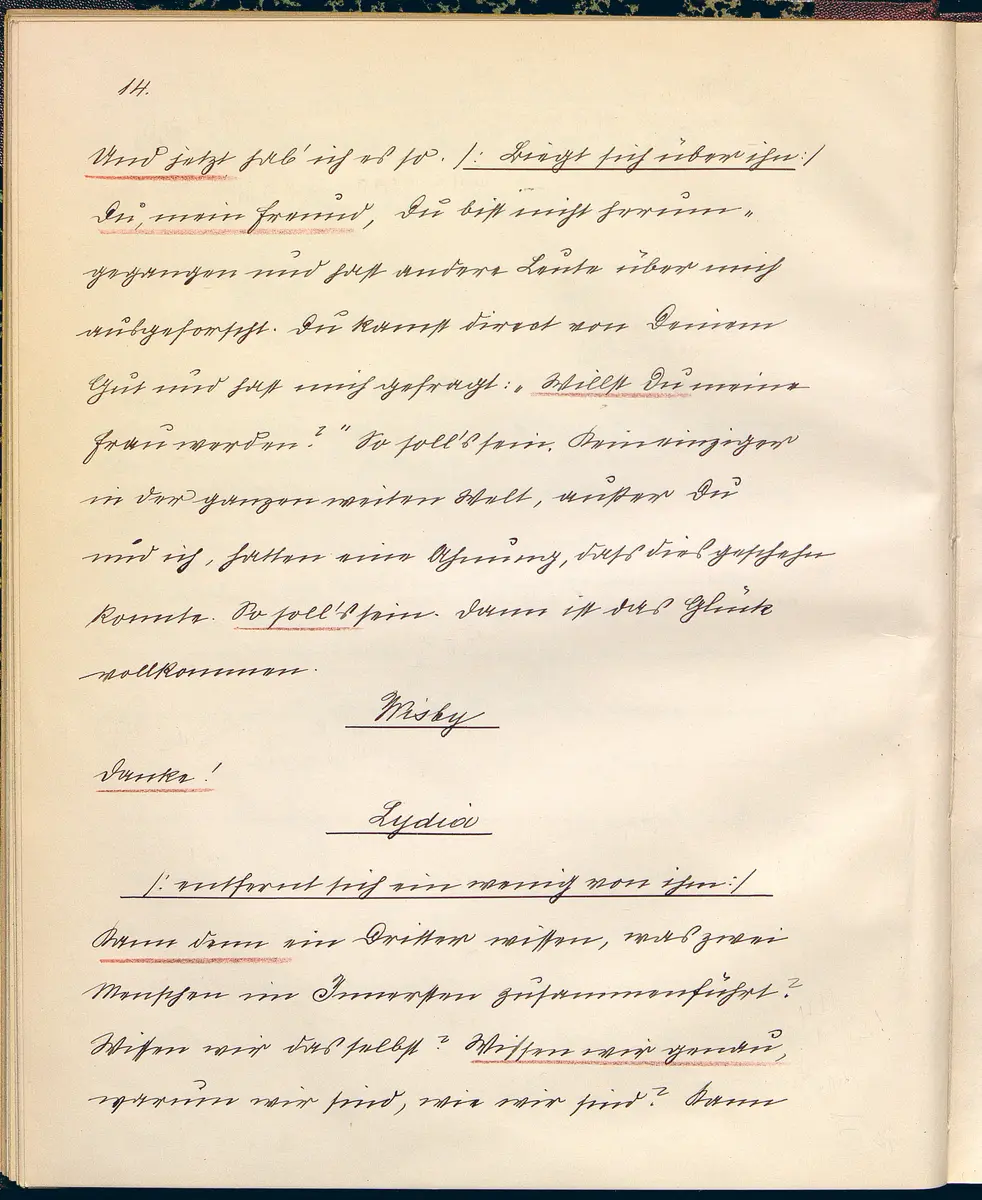 14.
Und jetzt hab' ich es so. /: Biegt sich über ihn :/
Du, mein Freund, Du bist nicht herum-
gegangen und hast andere Leute über mich
ausgeforscht. Du kamst direct von Deinem
Gut und hast mich gefragt: „Willst Du meine
Frau werden?" So soll's sein. Kein einziger
in der ganzen weiten Welt, außer Du
und ich, hatten eine Ahnung, dass dies geschehn
konnte. So soll's sein. Dann ist das Glück
vollkommen.
Wisby
Danke!
Lydia
/: entfernt sich ein wenig von ihm :/
Kann denn ein Dritter wissen, was zwei
Menschen im Innersten zusammenführt?
Wissen wir das selbst? Wissen wir genau,
warum wir sind, wie wir sind? Kann